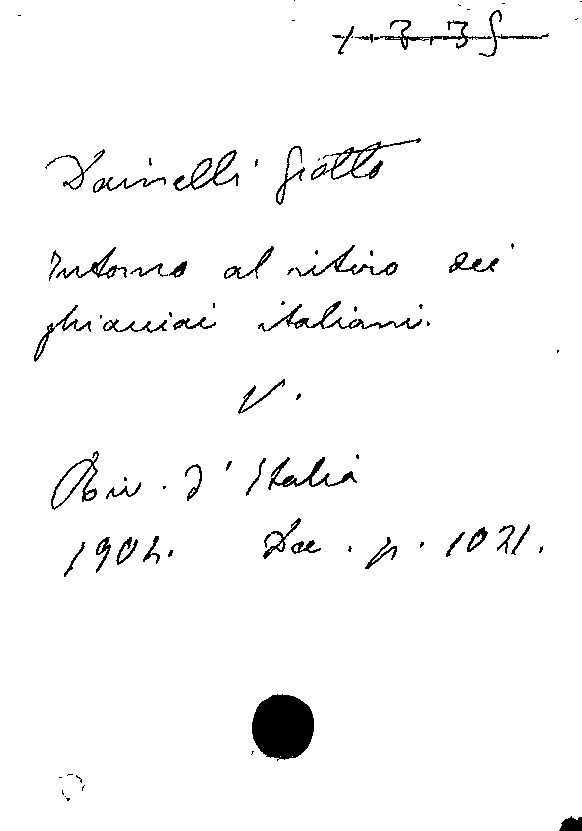 Dainelli Giotto
Intorno al ritiro dei
ghiacciai italiani.
V.
Riv. d'Italia
1904. Dec. p. 1021.